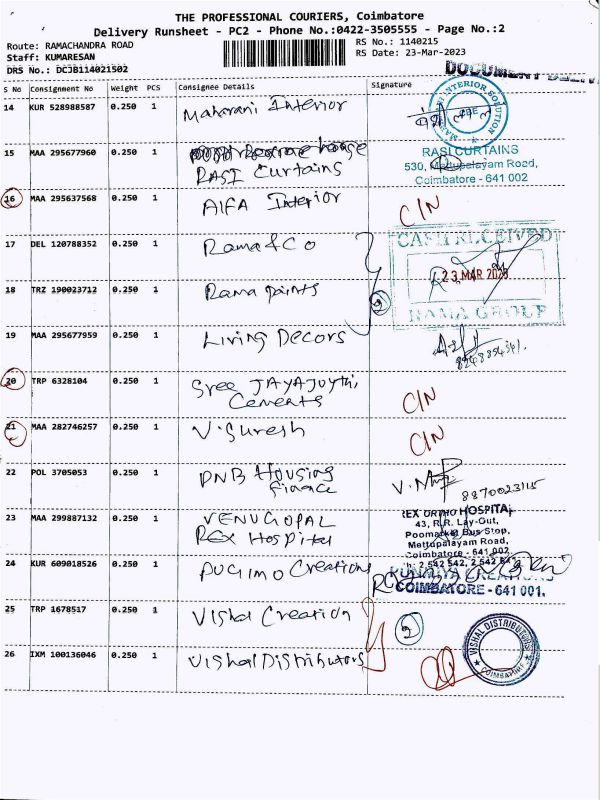 THE PROFESSIONAL COURIERS, Coimbatore
Delivery Runsheet - PC2 - Phone No.:0422-3505555 - Page No.:2
Route: RAMACHANDRA ROAD
RS No.: 1140215
Staff: KUMARESAN
RS Date: 23-Mar-2023
DRS No.: DCJB114021502
DOCUMENT
S No Consignment No Weight PCS Consignee Details Signature
14 KUR 528988587 0.250 1 Maharani Interior
INTERIOR SOLUTION
15 MAA 295677960 0.250 1
RASI Curtains
RASI CURTAINS
530, Mettupalayam Road,
Coimbatore - 641 002
16 MAA 295637568 0.250 1 AIFA Interior C/N
17 DEL 120788352 0.250 1 Rama & Co
CASH RECEIVED
23 MAR 2023
18 TRZ 190023712 0.250 1 Rama paints
2
RAMA GROUP
19 MAA 295677959 0.250 1 Living Decors
20 TRP 6328104 0.250 1 Sree JAYAJOYthi
Cements
C/N
21 MAA 282746257 0.250 1 V. Suresh C/N
22 POL 3705053 0.250 1 PNB Housing
finance
8870023115
23 MAA 299887132 0.250 1 VENUGOPAL
REX Hospital
REX ORTHO HOSPITAL
43, R.R. Lay-Out,
Poomarket Bus Stop,
Mettupalayam Road,
Coimbatore - 641 002
24 KUR 609018526 0.250 1 PUGIMO Creations
CREATIONS
COIMBATORE - 641 001.
25 TRP 1678517 0.250 1 Vishal Creation
2
26 IXM 100136046 0.250 1 Vishal Distributors
VISHAL DISTRIBUTORS
COIMBATORE